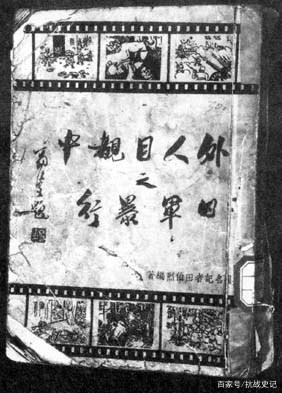 外人目覩中
之
日軍暴行
名記者田伯烈編著
百家号/抗战史记